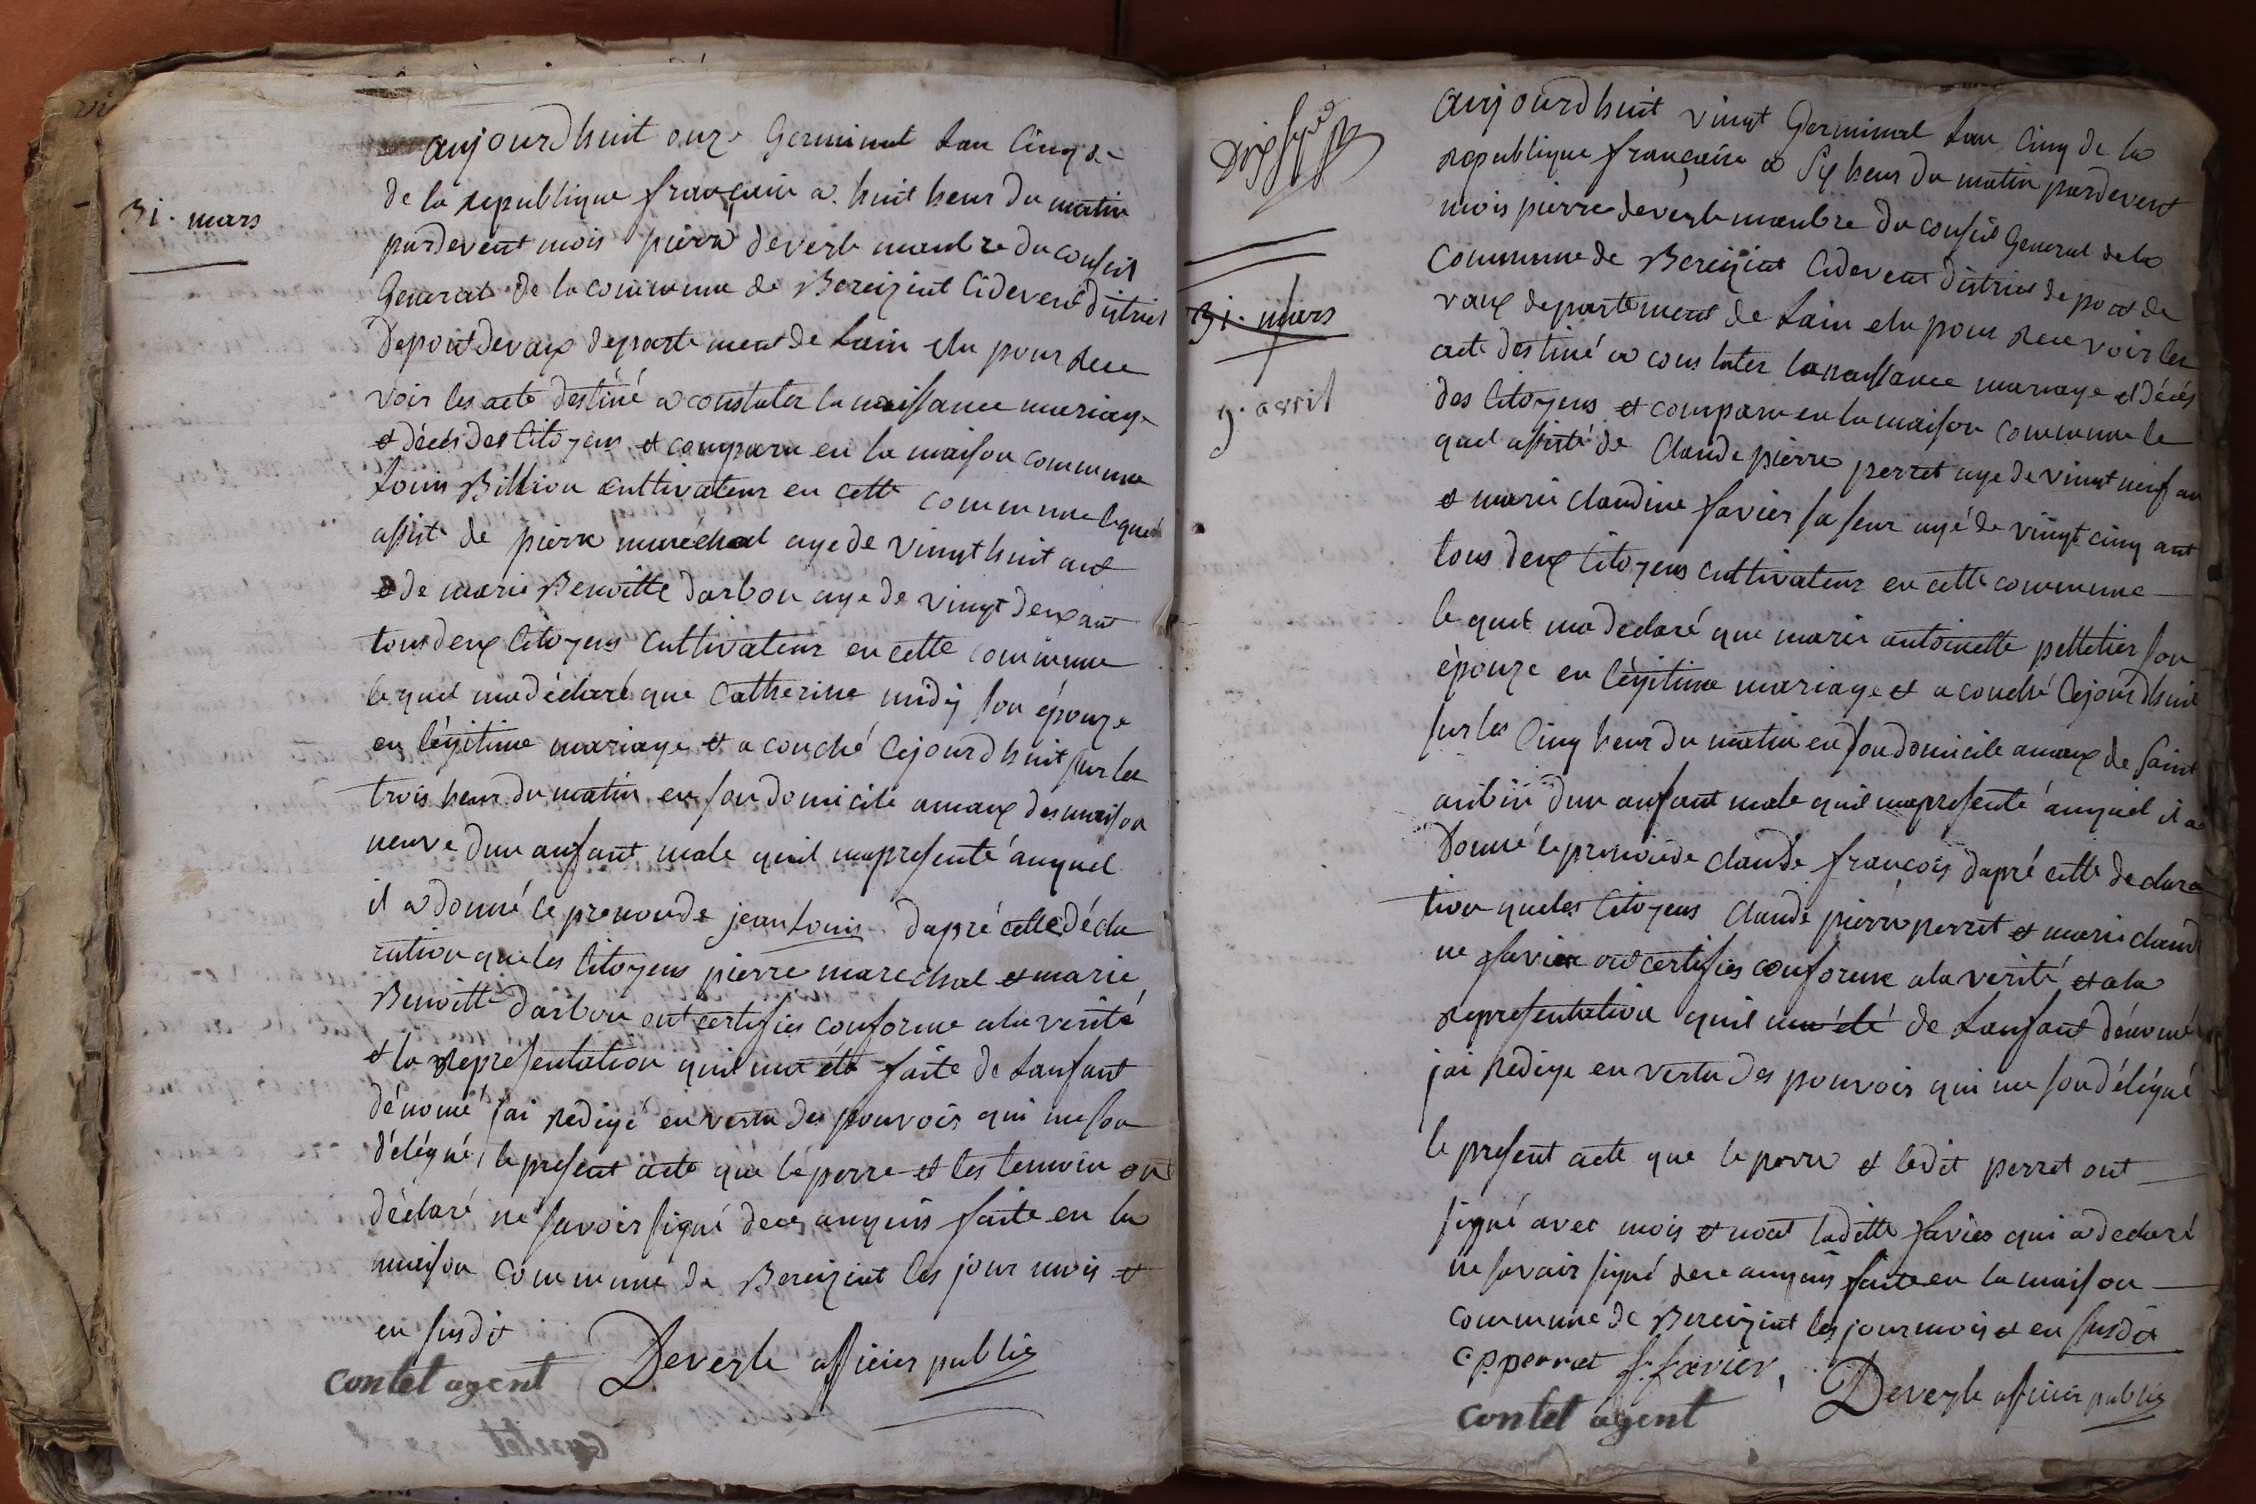 31. mars
aujourdhuit onze Germinal Lan Cinq de
de la republique françaire a huit heur du matin
pardevent mois pierre deverle manbre du conseil
General de la commune de Bereiziat Cidevent district
depontdevaux departement de Lain elu pour rece
voir les acte destiné a constater la naissance mariage
et décés des Citoyens et comparu en la maison commune
Louis Billion cultivateur en cette commune lequel
assisté de pierre maréchal age de vingt huit ant
et de marie Benoitte darbon age de vingt deux ant
tous deux Citoyens cultivateur en cette commune
lequel madéclaré que Catherine midy son épouze
en légitime mariage et a couché cejourdhuit sur les
trois heur du matin en son domicile amaux des maison
neuve dun anfant male quil mapresenté auquel
il a donné le prenon de jean Louis dapré cette décla
ration que les Citoyens pierre marechal et marie
Benoitte darbon ont certifies conforme ala verité
et la representation quil ma été faite de Lanfant
dénomé jai redigé en vertu des pouvois qui me son
délégué, le present acte que le perre et les temoin ont
déclaré ne savoir signé de ce anquis faite en la
maison commune de Bereiziat les jour mois et
en susdit
contet agent
Deverle officier public
31. mars
9. avril
aujourdhuit vingt Germinal Lan Cinq de la
republique françaire a six heur du matin pardevent
mois pierre deverle manbre du conseil General de la
commune de Bereiziat Cidevent district de pont de
vaux departement de Lain elu pour recevoir les
acte destiné a constater la naissance mariage et décés
des Citoyens et comparu en la maison commune le
quel assisté de Claude pierre perret age de vingt neuf an
et marie claudine favier sa seur agé de vingt cinq ant
tous deux Citoyens cultivateur en cette commune
le quel ma declaré que marie antoinette pelletier son
épouze en légitime mariage et a couché cejourdhuit
sur les cinq heur du matin en son domicile amaux de saint
aubin dun anfant male quil mapresenté auquel il a
donné le prenon de Claude françois dapré cette declara
tion que les Citoyens Claude pierre perret et marie claudi
ne favier ont certifies conforme ala verité et ala
representation quil ma été de Lanfant dénomé
jai redige en vertu des pouvois qui me son délégué
le present acte que le perre et ledit perret ont
signé avec mois et nont ladite favier qui a declaré
ne savoir signé de ce anquis faite en la maison
commune de Bereiziat les jour mois et en susdit
c.p perret f. favier,
contet agent
Deverle officier public